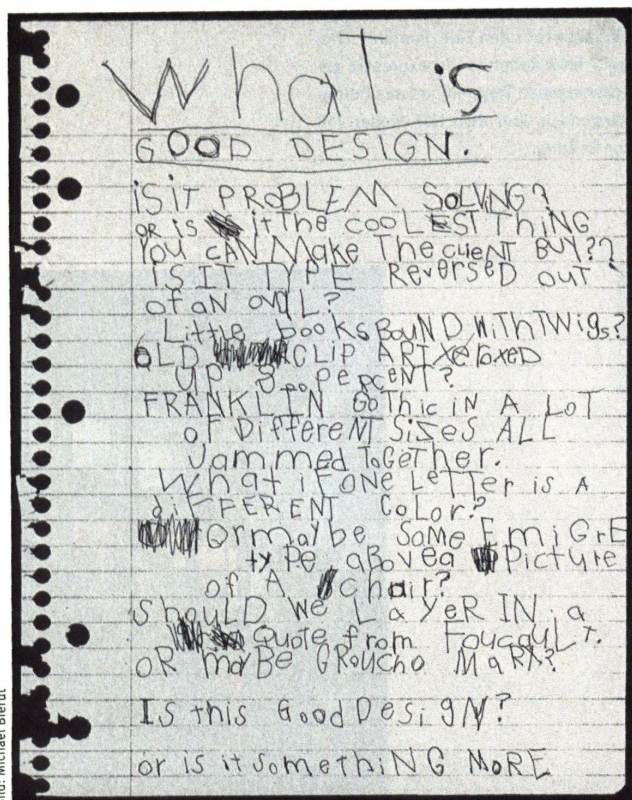 What is
GOOD DESIGN.
iS iT PRoBLEM SoLViNG?
oR is it The cooLEST ThiNG
You cAN Make The clieNT BUY??
I S I T T Y P E Reversed ouT
of aN oVaL?
LiTTle booksBouND WiThTWigs?
OLD CLiP ARTXeRoxed
UP 800 PeRceNT?
FRANKLIN GoThic iN A LoT
oF DiffereNT SiZes ALL
Jammed ToGeTher.
WhaT iF oNe LeTTer is A
diFFERENT CoLor?
Or maybe Some EmiGrE
type abovea Picture
of A chair?
ShouLD We LayeR IN a
Quote from FoucauLT.
oR mayBe GRoucho MaRX?
Is this GoodDesiGN?
or is it SomethiNG MoRE
Bild: Michael Bierut